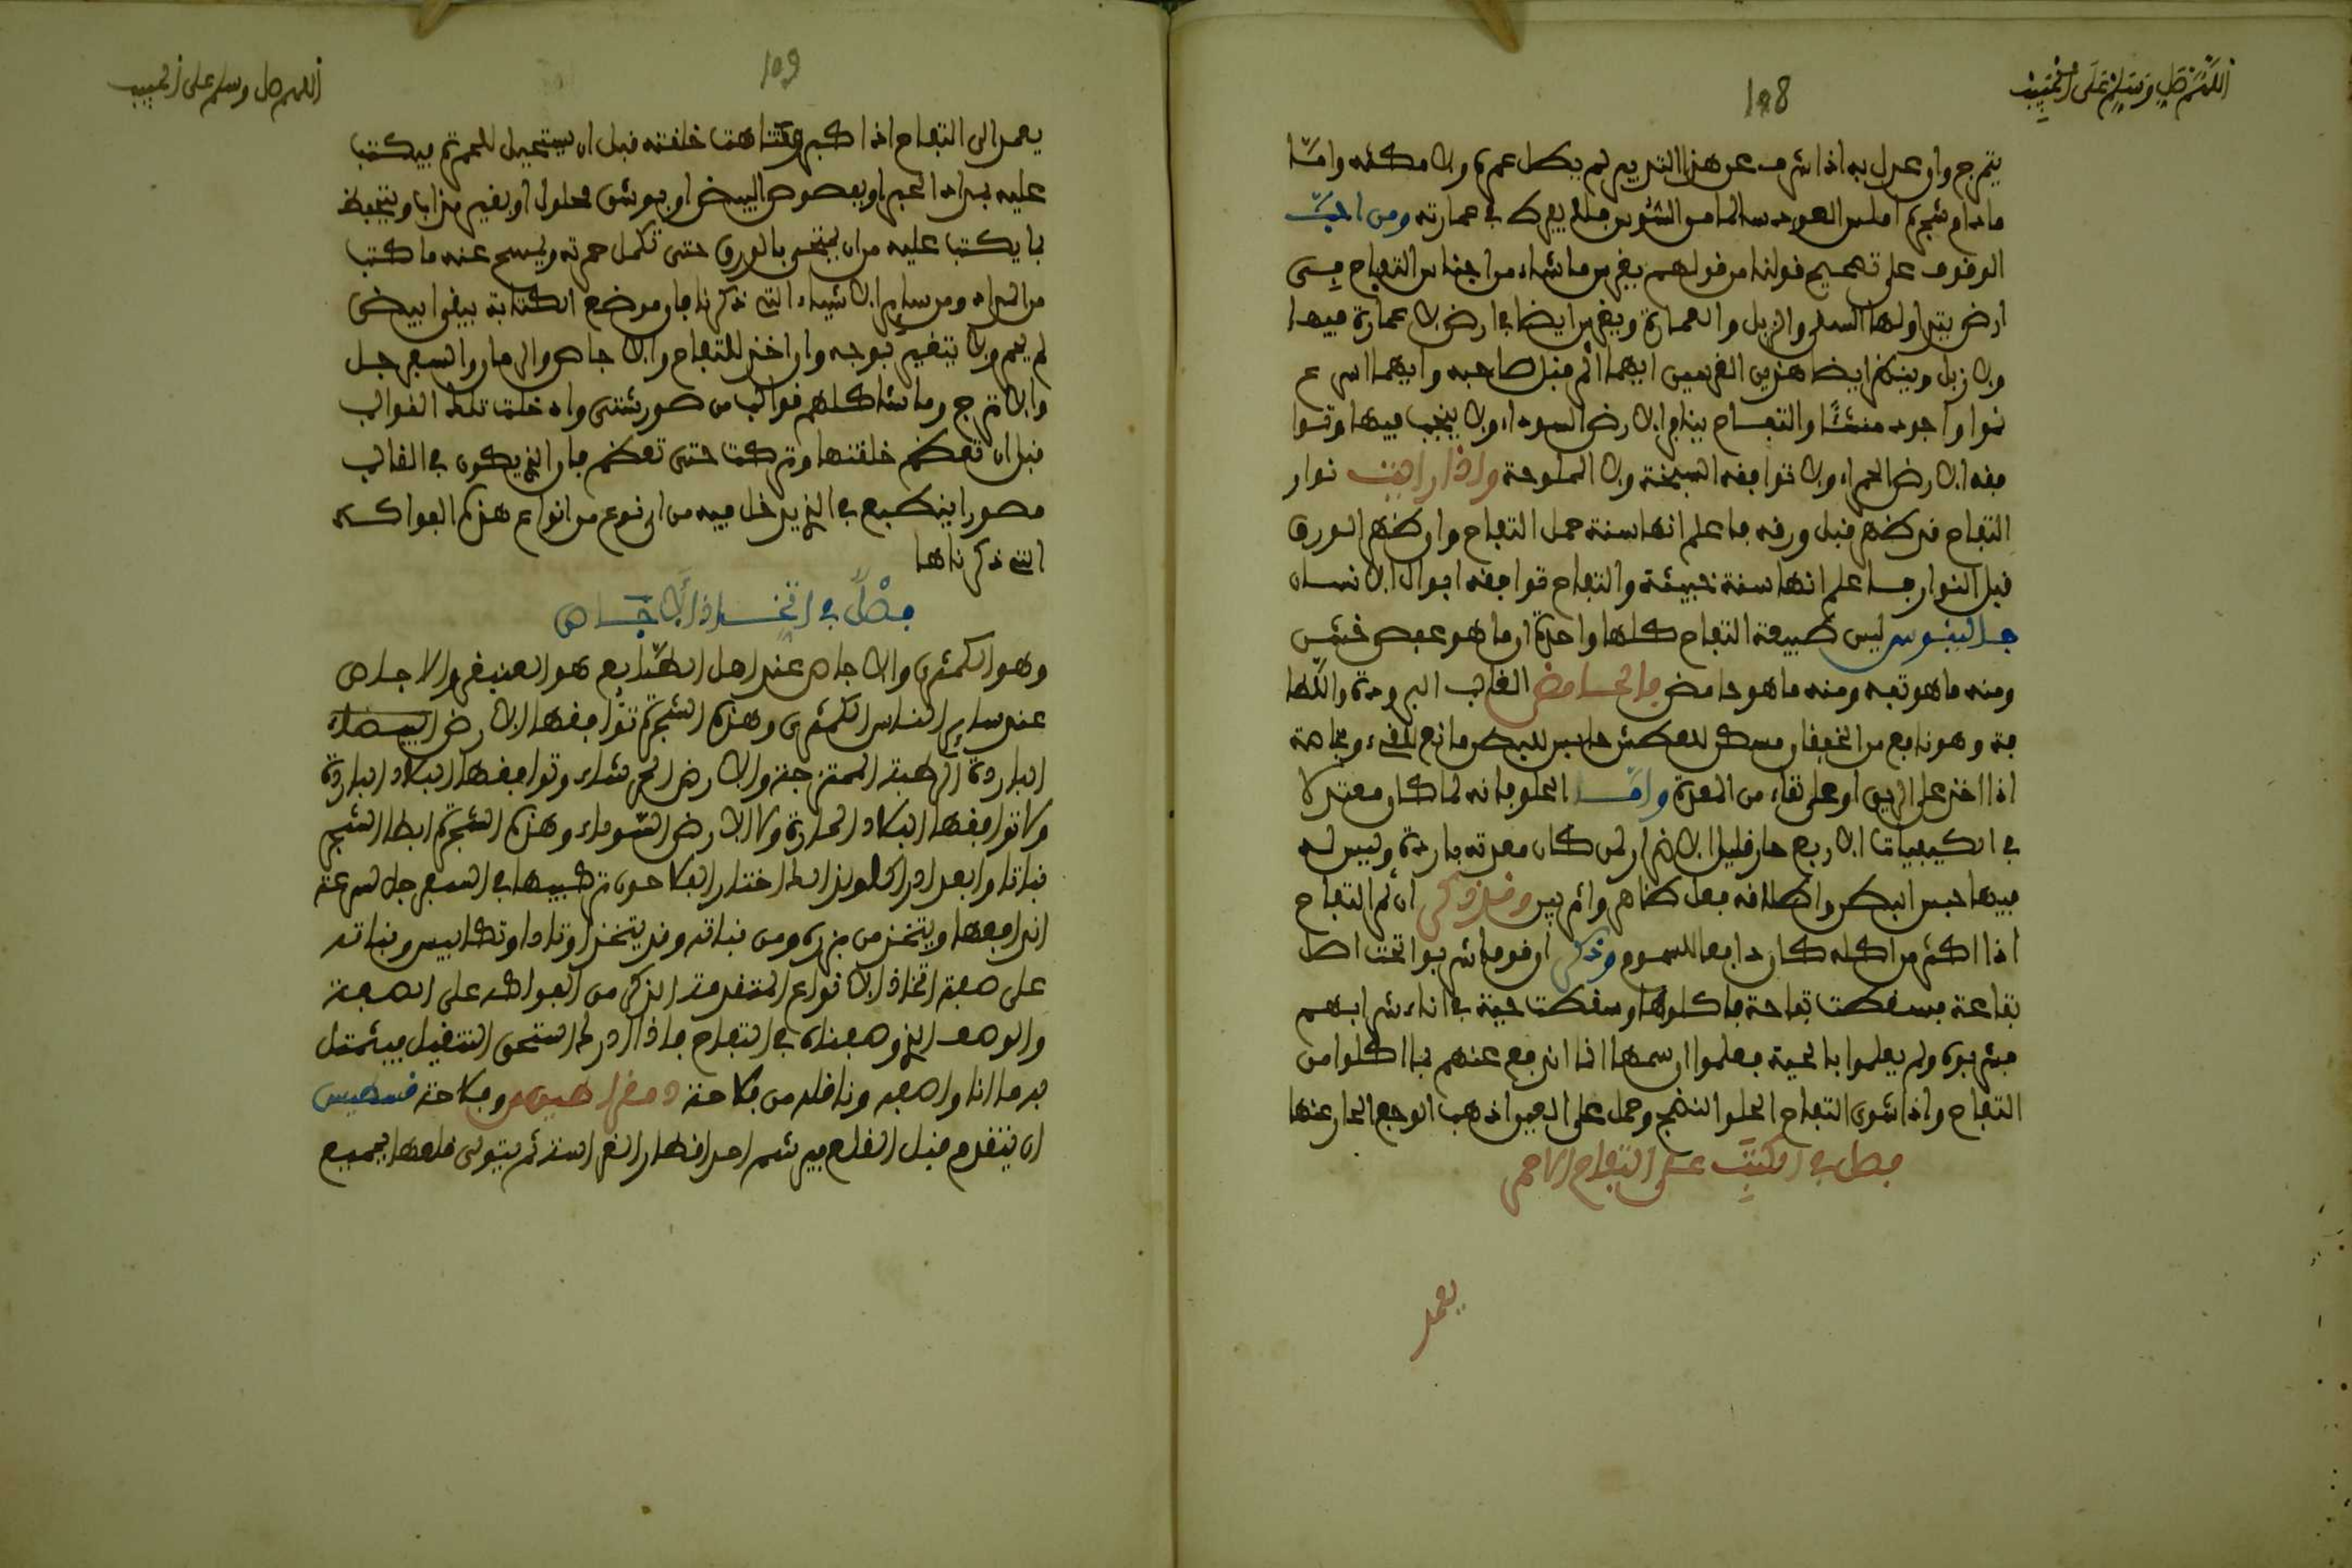 اللهم صل وسلم على الحبيب
108
يتبرج وان عدل به اذا شرف عن هذا التدبير لم يطل عمره ولا مكثه واما
ما دام شجره املس العود سالما من الشوس فلا يفرط في عمارته ومن احب
الوقوف على تصحيح قولنا من قولهم يغرس ما شاء من اجناس التفاح في
ارض يتداولها السقي والزبل والعمارة ويغرس ايضا في ارض لا عمارة فيها
ولا زبل وينظر ايضا هذين الغرسين ايهما اثمر قبل صاحبه وايهما اسرع
نموا واجود منشئا والتفاح ينافر الارض السوداء ولا ينجب فيها وتوا
فقه الارض الحمراء ولا توافقه السبخة ولا المملوحة واذا رايت نوار
التفاح قد ظهر قبل ورقه فاعلم انها سنة حمل التفاح وان ظهر الورق
قبل النوار فاعلم انها سنة خبيثة والتفاح توافقه ابوال الانسان
جالينوس ليس طبيعة التفاح كلها واحدة اذ ما هو عفص خشن
ومنه ما هو تفه ومنه ما هو حامض فالحامض الغالب البرودة واللطا
فة وهو نافع من الخفقان مسكن للعطش حابس للبطن مانع للقيء وبخاصة
اذا اخذ على الريق او على نقاء من المعدة واما الحلو فانه لما كان معتدلا
في الكيفيات الاربع حار قليلا لاضرار لمن كان معدته باردة وليس له
فيها حبس البطن واطلاقه فعل ظاهر واثر بين وقد ذكر ان ثمر التفاح
اذا اكثر من اكله كان دافعا للسموم وذكر ان قوما شربوا تحت اصل
تفاحة فسقطت تفاحة فاكلوها وسقطت حية في اناء شرابهم
فشربوه ولم يعلموا بالحية فعلموا ان سمها انما اندفع عنهم بما اكلوا من
التفاح واذا شوي التفاح الحلو النضج وحمل على العين اذهب الوجع الحار عنها
فصل في الكتب على التفاح الاحمر
يعمد
اللهم صل وسلم على الحبيب
109
يعمد الى التفاح اذا كبر وتناهت خلقته قبل ان يستحيل للحمرة فيكتب
عليه بمداد الحبر او بفصوص البيض او بوشق محلول او بغير مذاب ويتحفظ
بما يكتب عليه من ان يحتجب بالورق حتى تكمل حمرته ويمسح عنه ما كتب
من المداد ومن ساير الاشياء التي ذكرنا فان موضع الكتابة يبقى ابيض
لم يحمر ولا يتغير بوجه وان اخذ للتفاح والاجاص والرمان والسفرجل
والاترج وما شاكلهم قوالب من صور شتى وادخلت تلك القوالب
قبل ان تعظم خلقتها وتركت حتى تعظم فان الذي يكون في القالب
مصورا ينطبع في الذي يدخل فيه من اي نوع من انواع هذه الفواكه
التي ذكرناها
فصل في اتخاذ الاجاص
وهو الكمثرى والاجاص عند اهل الطبايع هو العنبقر والاجاص
عند ساير الناس الكمثرى وهذه الشجرة توافقها الارض البيضاء
الباردة الرطبة الممتزجة والارض الحرشاء وتوافقها البلاد الباردة
ولا توافقها البلاد الحارة ولا الارض السوداء وهذه الشجرة ابطا الشجر
نباتا وابعد ادراكا ولذلك اختار الفلاحون تركيبها في السفرجل لسرعة
اندفاعها ويتخذ من بزره ومن نباته وقد يتخذ اوتادا وتكابيس ونباته
على صفة اتخاذ الانواع المتقدمة الذكر من الفواكه على الصفة
والوصف الذي وصفناه في التفاح فاذا ادرك استحق التنقيل فيمتثل
فيه ما انا واصفه وناقله من فلاحة دمقراطيس وفلاحة قسطيس
ان يتقدم قبل القلع فيرشم احد اقطار الغراسة ثم يتولى قلعها بجميع